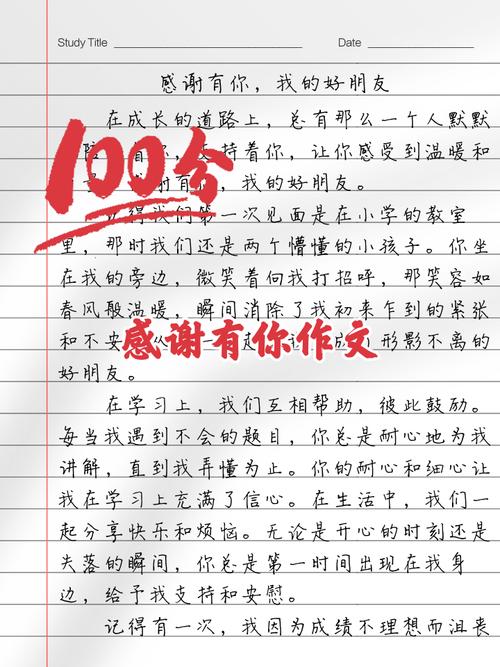 Study Title
Date
感谢有你，我的好朋友
在成长的道路上，总有那么一个人默默
着你，支持着你，让你感受到温暖和
有你，我的好朋友。
100分
记得我们第一次见面是在小学的教室
里，那时我们还是两个懵懂的小孩子。你坐
在我的旁边，微笑着向我打招呼，那笑容如
春风般温暖，瞬间消除了我初来乍到的紧张
和不安。从 一 形影不离的
感谢有你作文
好朋友。
在学习上，我们互相帮助，彼此鼓励。
每当我遇到不会的题目，你总是耐心地为我
讲解，直到我弄懂为止。你的耐心和细心让
我在学习上充满了信心。在生活中，我们一
起分享快乐和烦恼。无论是开心的时刻还是
失落的瞬间，你总是第一时间出现在我身
边，给予我支持和安慰。
记得有一次，我因为成绩不理想而沮丧